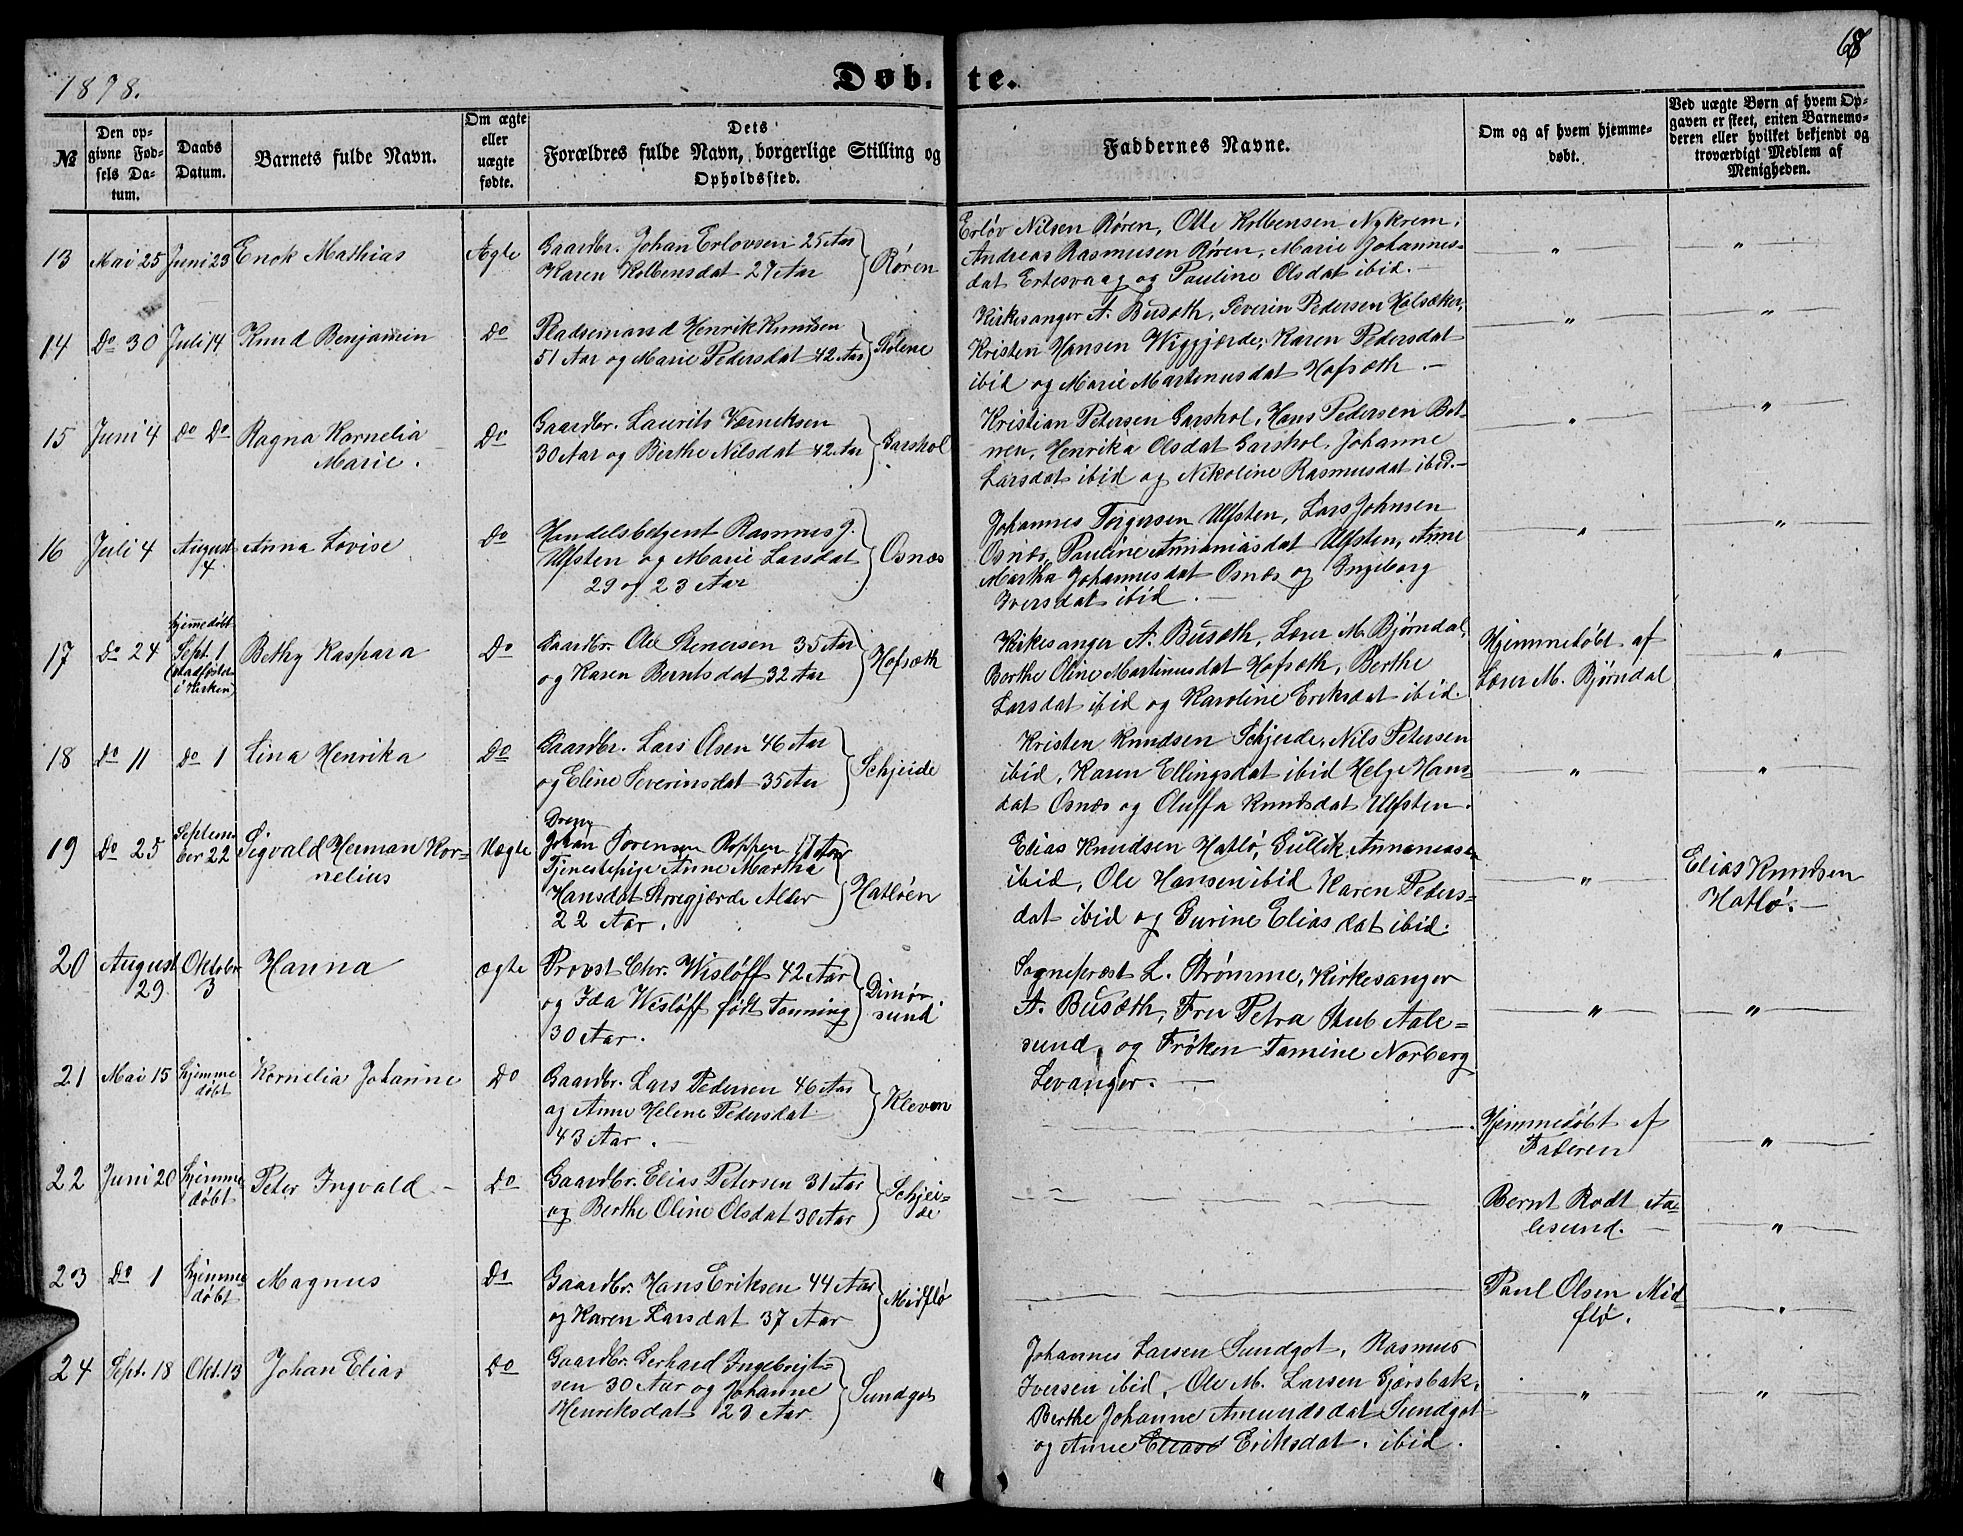 1878.
Døb-te.
68
№
Den opgivne Fødsels Datum.
Daabs Datum.
Barnets fulde Navn.
Om ægte eller uægte fødte.
Dets Forældres fulde Navn, borgerlige Stilling og Opholdssted.
Faddernes Navne.
Om og af hvem hjemmedøbt.
Ved uægte Børn af hvem Opgaven er skeet, enten Barnemoderen eller hvilket bekjendt og troværdigt Medlem af Menigheden.
13 Mai 25 Juni 23 Enok Mathias Ægte
Gaardbr. Johan Erlovsen 25 Aar
Karen Kolbensdat 27 Aar } Røren
Erløv Nilsen Røren, Otte Kolbensen Nykrem,
Andreas Rasmusen Røren, Marie Johannes-
dat Ertesvaag og Pauline Olsdat ibid. —
14 Do 30 Juli 14 Knud Benjamin Do
Pladsemand Henrik Knudsen
51 Aar og Marie Pedersdat 42 Aar } Stølene
Kirkesanger A. Busæth, Severin Pedersen Holsæker,
Kristen Hansen Wiggjærde, Karen Pedersdat
ibid og Marie Martinusdat Hofsæth. —
15 Juni 4 Do Do Ragna Kornelia
Marie. Do
Gaardbr. Laurits Værniksen
30 Aar og Berthe Nilsdat 42 Aar } Garshol
Kristian Petersen Garshol, Hans Pedersen Bot-
nen, Henrika Olsdat Garshol, Johanne
Larsdat ibid og Nikoline Rasmusdat ibid. —
16 Juli 4 August
4 Anna Lovise Do
Handelsbetjent Rasmus J.
Ulfsten og Marie Larsdat
29 og 23 Aar } Osnæs
Johannes Torgersen Ulfsten, Lars Johnsen
Osnæs, Pauline Annaniasdat Ulfsten, Anne
Martha Johannesdat Osnæs og Ingeborg
Iversdat ibid. —
17 Do 24 hjemmedøbt
Sept. 1
(stadfæstet
i Kirken) Bethy Kaspara Do
Gaardbr. Ole Stenersen 35 Aar
og Karen Berntsdat 32 Aar } Hofsæth
Kirkesanger A. Busæth, Lærer M. Bjørndal,
Berthe Oline Martinusdat Hofsæth, Berthe
Larsdat ibid og Karoline Eriksdat ibid.
Hjemmedøbt af
Lærer M. Bjørndal
18 Do 11 Do 1 Lina Henrika Do
Gaardbr. Lars Olsen 46 Aar
og Eline Severinsdat 35 Aar } Schjeide
Kristen Knudsen Schjerde, Nils Petersen
ibid, Karen Ellingsdat ibid Helge Hans-
dat Osnæs og Oluffa Knudsdat Ulfsten.
19 Do 25 Septem-
ber 22 Sigvald Herman Kor-
nelius Uægte
Dreng
Johan Sørensen Roppen 17 Aar
Tjenestepige Anne Martha
Hansdat Storegjærde Alder
22 Aar. } Hatløen
Elias Knudsen Hatlø, Gullik Annaniasen
ibid, Ole Hansen ibid Karen Peders-
dat ibid og Gurine Eliasdat ibid.
Elias Knudsen
Hatlø. —
20 August
29 Oktober
3 Hanna ægte
Provst Chr. Wisløff 42 Aar
og Ida Wisløff født Tanning
30 Aar. } Dimør
sund
Sognepræst L. Strømme, Kirkesanger
A. Busæth, Fru Petra Stub Aale-
sund, og Frøken Tomine Norberg
Levanger. —
21 Mai 15 hjemme
døbt Kornelia Johanne Do
Gaardbr. Lars Pedersen 46 Aar
og Anne Helene Pedersdat
43 Aar. — } Kleven
Hjemmedøbt af
Faderen
22 Juni 20 hjemme
døbt Peter Ingvald — Do
Gaardbr. Elias Petersen 31 Aar
og Berthe Oline Olsdat 30 Aar } Schjei-
de
Bernt Rodt Aa-
lesund. —
23 Do 1 hjemme
døbt Magnus Do
Gaardbr. Hans Eriksen 44 Aar
og Karen Larsdat 37 Aar } Midflø
Paul Olsen Mid-
flø.
24 Sept. 18 Okt. 13 Johan Elias Do
Gaardbr. Gerhard Ingebrigt-
sen 30 Aar og Johanne
Henriksdat 23 Aar. } Sundgot
Johannes Larsen Sundgot, Rasmus
Iversen ibid, Ole M. Larsen Gjærsbak,
Berthe Johanne Amundsdat Sundgot
og Anne Eliasd Eriksdat. ibid.